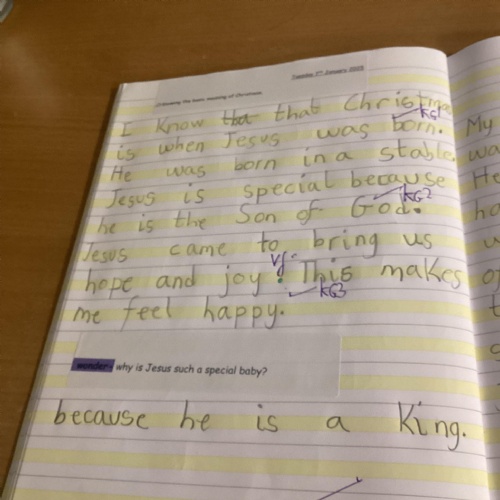 Tuesday 7th January 2025
LO Knowing the basic meaning of Christmas.
I know tha that Christmas
KG1
is when Jesus was born. My
He was born in a stable. wa
Jesus is special because He
KG2
he is the Son of God. ha
Jesus came to bring us
vf.
hope and joy. This makes of
KG3
me feel happy.
wonder- why is Jesus such a special baby?
because he is a King.